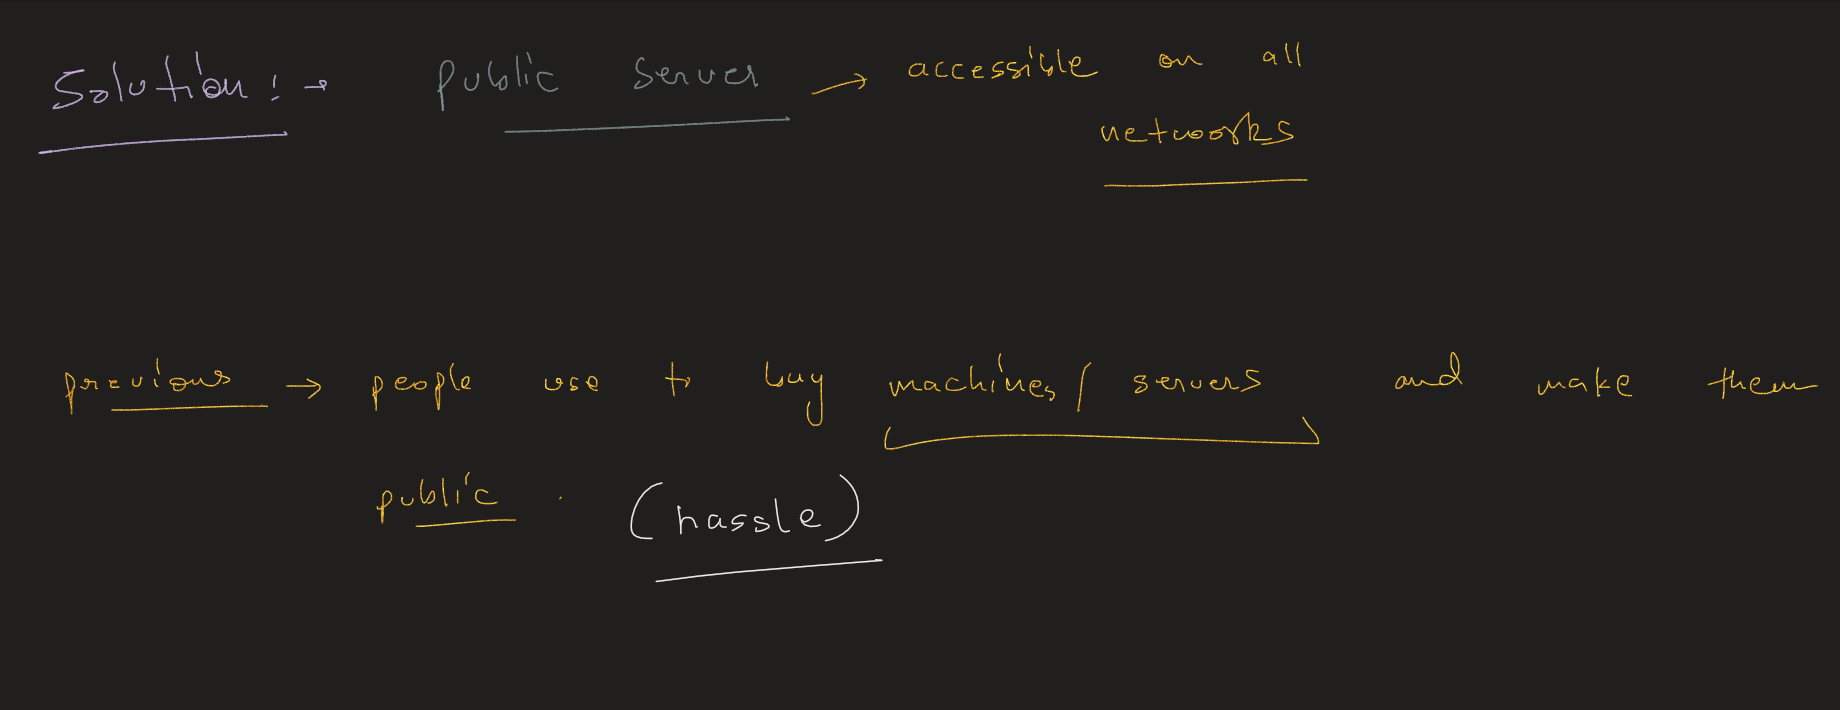 Solution :→ Public Server → accessible on all
networks
previous → people use to buy machines/ servers and make them
public . (hassle)